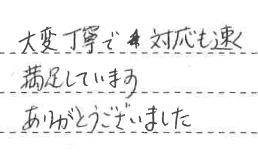 大変丁寧で対応も速く
満足しています
ありがとうございました